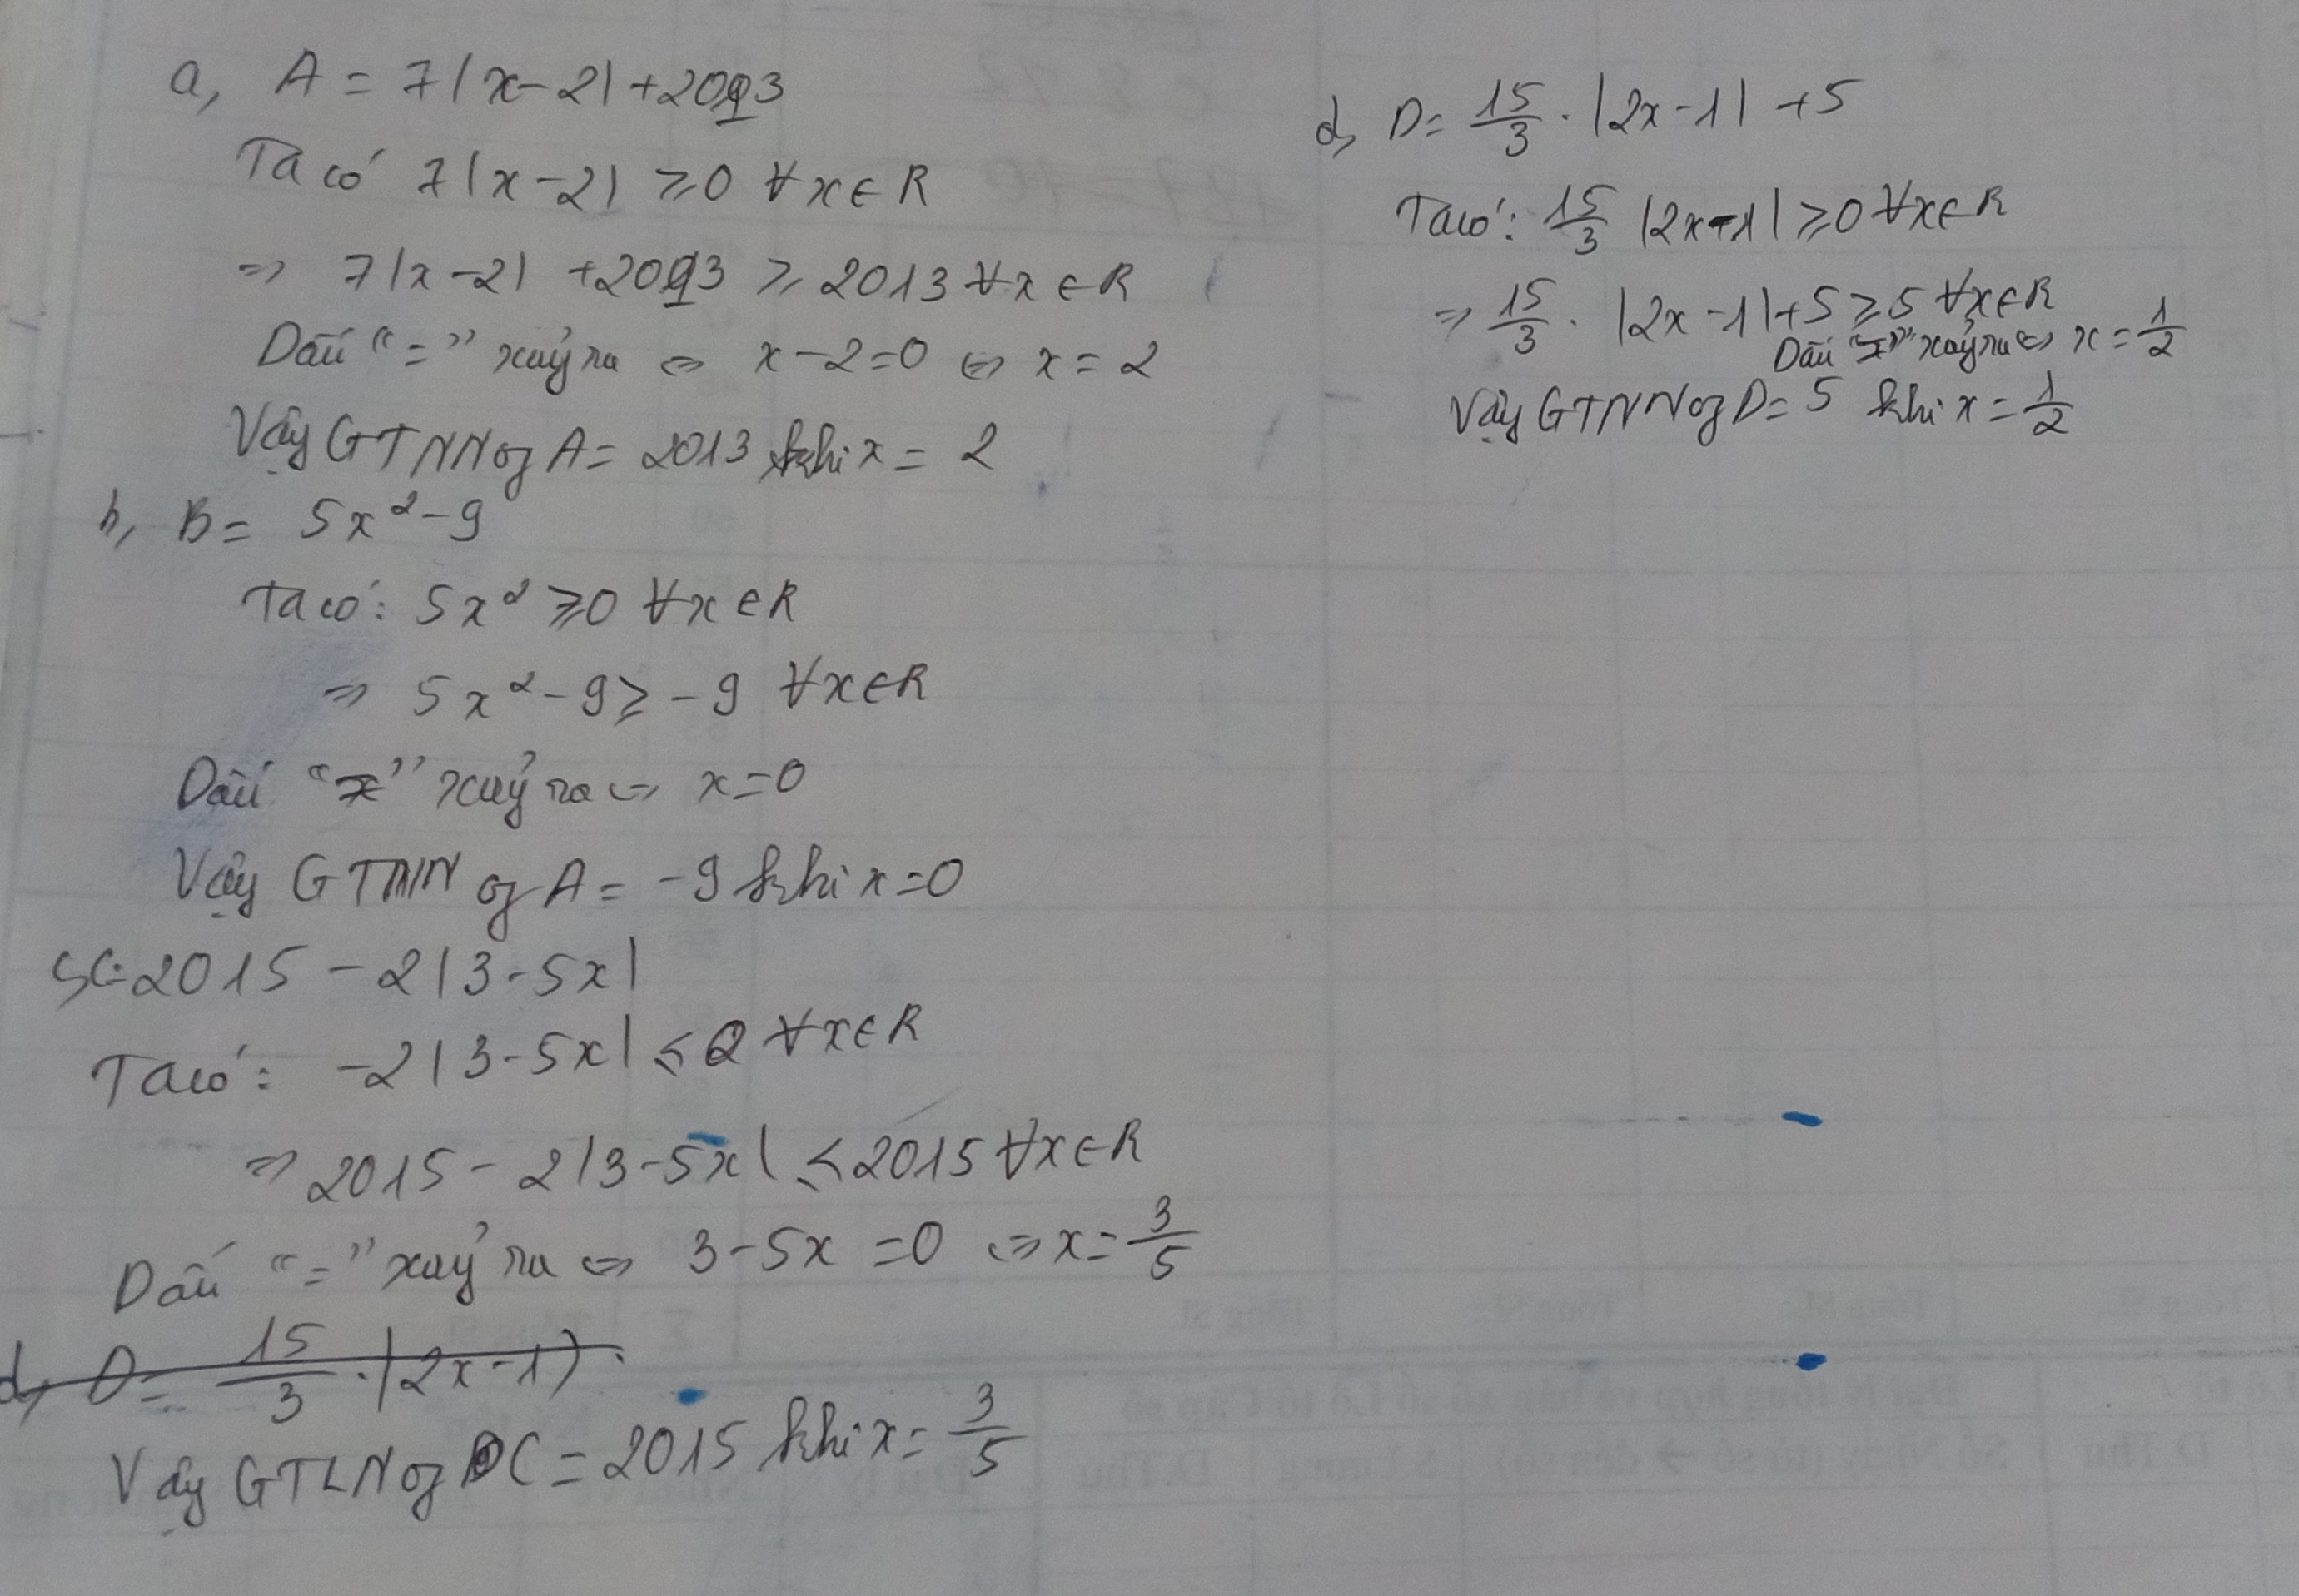 a, A = 7|x-2| + 2013
Ta có 7|x-2| ≥ 0 ∀x∈R
=> 7|x-2| + 2013 ≥ 2013 ∀x∈R
Dấu "=" xảy ra <=> x-2=0 <=> x=2
Vậy GTNN of A = 2013 khi x = 2
b, B = 5x²-9
Ta có: 5x² ≥ 0 ∀x∈R
=> 5x²-9 ≥ -9 ∀x∈R
Dấu "=" xảy ra <=> x=0
Vậy GTNN of A = -9 khi x=0
C=2015 - 2|3-5x|
Ta có: -2|3-5x| ≤ 0 ∀x∈R
=> 2015 - 2|3-5x| ≤ 2015 ∀x∈R
Dấu "=" xảy ra <=> 3-5x =0 <=> x = 3/5
d, D = 15/3 . |2x-1|
Vậy GTLN of C = 2015 khi x = 3/5
d, D = 15/3 . |2x-1| +5
Ta có: 15/3 |2x-1| ≥ 0 ∀x∈R
=> 15/3 . |2x-1| +5 ≥ 5 ∀x∈R
Dấu "=" xảy ra <=> x = 1/2
Vậy GTNN of D = 5 khi x = 1/2